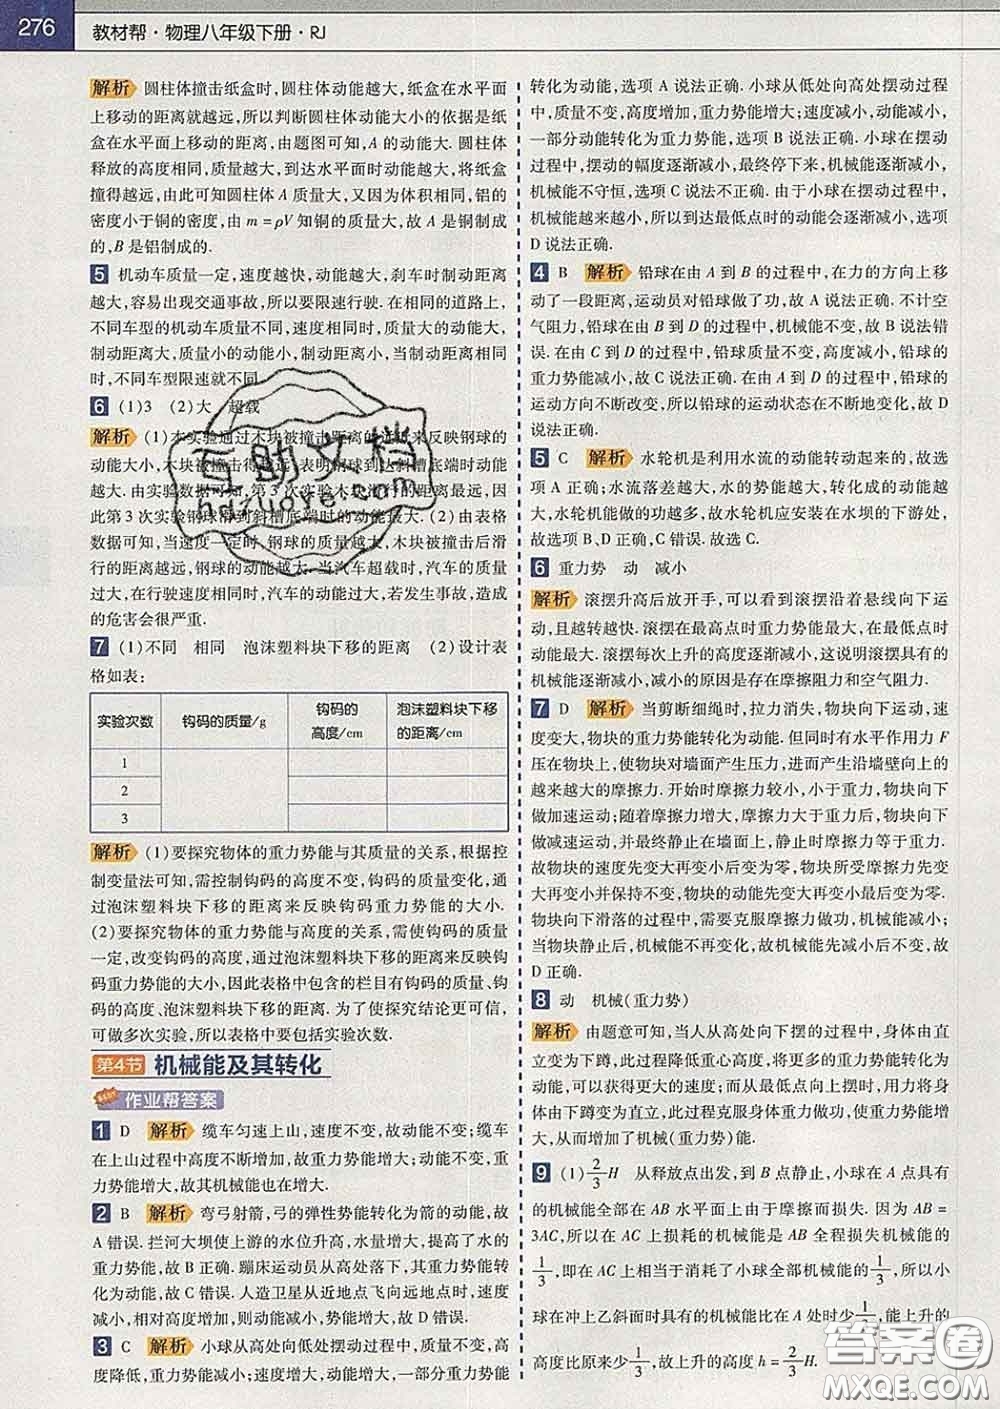 276
教材帮·物理八年级下册·RJ
解析 圆柱体撞击纸盒时,圆柱体动能越大,纸盒在水平面
上移动的距离就越远,所以判断圆柱体动能大小的依据是纸
盒在水平面上移动的距离,由题图可知,A的动能大.圆柱体
释放的高度相同,质量越大,到达水平面时动能越大,将纸盒
撞得越远,由此可知圆柱体A质量大,又因为体积相同,铝的
密度小于铜的密度,由m=ρV知铜的质量大,故A是铜制成
的,B是铝制成的.
5 机动车质量一定,速度越快,动能越大,刹车时制动距离
越大,容易出现交通事故,所以要限速行驶.在相同的道路上,
不同车型的机动车质量不同,速度相同时,质量大的动能大,
制动距离大,质量小的动能小,制动距离小,当制动距离相同
时,不同车型限速就不同.
6 (1)3 (2)大 超载
解析 (1)本实验通过木块被撞击距离的远近来反映钢球的
动能大小,木块被撞击得越远,表明钢球到达斜槽底端时动能
越大.由实验数据可知,第3次实验木块滑行的距离最远,因
此第3次实验钢球滑到斜槽底端时的动能最大.(2)由表格
数据可知,当速度一定时,钢球的质量越大,木块被撞击后滑
行的距离越远,钢球的动能越大.当汽车超载时,汽车质量过
大,在行驶速度相同时,汽车的动能过大,若发生事故,造成
的危害会很严重.
7 (1)不同 相同 泡沫塑料块下移的距离 (2)设计表
格如表:
实验次数 钩码的质量/g 钩码的高度/cm 泡沫塑料块下移的距离/cm
1
2
3
解析 (1)要探究物体的重力势能与其质量的关系,根据控
制变量法可知,需控制钩码的高度不变,钩码的质量变化,通
过泡沫塑料块下移的距离来反映钩码重力势能的大小.
(2)要探究物体的重力势能与高度的关系,需使钩码的质量
一定,改变钩码的高度,通过泡沫塑料块下移的距离来反映
钩码重力势能的大小,因此表格中包含的栏目有钩码的质量、
钩码的高度、泡沫塑料块下移的距离.为了使探究结论更可信,
可做多次实验,所以表格中要包括实验次数.
第4节 机械能及其转化
作业帮答案
1 D 解析 缆车匀速上山,速度不变,故动能不变;缆车
在上山过程中高度不断增加,故重力势能增大;动能不变,重
力势能增大,故其机械能也在增大.
2 B 解析 弯弓射箭,弓的弹性势能转化为箭的动能,故
A错误.拦河大坝使上游的水位升高,水量增大,提高了水的
重力势能,故B正确.蹦床运动员从高处落下,其重力势能转
化为动能,故C错误.人造卫星从近地点飞向远地点时,速度
减小,相对高度增加,则动能减小,势能增大,故D错误.
3 C 解析 小球从高处向低处摆动过程中,质量不变,高
度降低,重力势能减小;速度增大,动能增大,一部分重力势能
转化为动能,选项A说法正确.小球从低处向高处摆动过程
中,质量不变,高度增加,重力势能增大;速度减小,动能减小,
一部分动能转化为重力势能,选项B说法正确.小球在摆动
过程中,摆动的幅度逐渐减小,最终停下来,机械能逐渐减小,
机械能不守恒,选项C说法不正确.由于小球在摆动过程中,
机械能越来越小,所以到达最低点时的动能会逐渐减小,选项
D说法正确.
4 B 解析 铅球在由A到B的过程中,在力的方向上移
动了一段距离,运动员对铅球做了功,故A说法正确.不计空
气阻力,铅球在由B到D的过程中,机械能不变,故B说法错
误.在由C到D的过程中,铅球质量不变,高度减小,铅球的
重力势能减小,故C说法正确.在由A到D的过程中,铅球的
运动方向不断改变,所以铅球的运动状态在不断地变化,故D
说法正确.
5 C 解析 水轮机是利用水流的动能转动起来的,故选
项A正确;水流落差越大,水的势能越大,转化成的动能越
大,水轮机能做的功越多,故水轮机应安装在水坝的下游处,
故选项B、D正确,C错误.故选C.
6 重力势 动 减小
解析 滚摆升高后放开手,可以看到滚摆沿着悬线向下运
动,且越转越快.滚摆在最高点时重力势能最大,在最低点时
动能最大.滚摆每次上升的高度逐渐减小,这说明滚摆具有的
机械能逐渐减小,减小的原因是存在摩擦阻力和空气阻力.
7 D 解析 当剪断细绳时,拉力消失,物块向下运动,速
度变大,物块的重力势能转化为动能.但同时有水平作用力F
压在物块上,使物块对墙面产生压力,进而产生沿墙壁向上的
越来越大的摩擦力.开始时摩擦力较小,小于重力,物块向下
做加速运动;随着摩擦力增大,摩擦力大于重力后,物块向下
做减速运动,并最终静止在墙面上,静止时摩擦力等于重力.
故物块的速度先变大再变小后变为零,物块所受摩擦力先变
大再变小并保持不变,物块的动能先变大再变小最后变为零.
物块向下滑落的过程中,需要克服摩擦力做功,机械能减小;
当物块静止后,机械能不再变化,故机械能先减小后不变,故
D正确.
8 动 机械(重力势)
解析 由题意可知,当人从高处向下摆的过程中,身体由直
立变为下蹲,此过程降低重心高度,将更多的重力势能转化为
动能,可以获得更大的速度;而从最低点向上摆时,身体再次
由下蹲变为直立,此过程克服身体重力做功,使重力势能增
大,从而增加了机械(重力势)能.
9 (1)2/3H 从释放点出发,到B点静止,小球在A点具有
的机械能全部在AB水平面上由于摩擦而损失.因为AB=
3AC,所以在AC上损耗的机械能是AB全程损失机械能的
1/3,即在AC上相当于消耗了小球全部机械能的1/3,所以小
球在冲上乙斜面时具有的机械能比在A处时少1/3,能上升的
高度比原来少1/3,故上升的高度h=2/3H.
互助文档
hdzuoye.com
答案圈
MXQE.COM